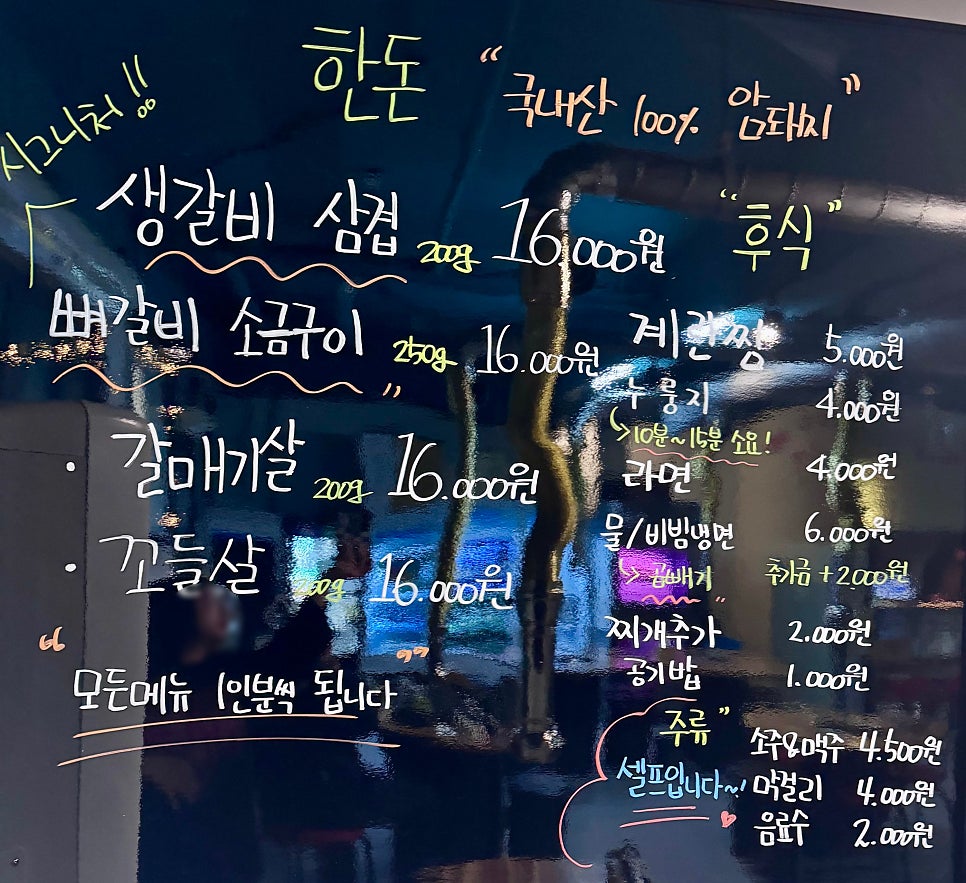 한돈 “국내산 100% 암돼지”
시그니처!!
생갈비 삼겹 200g 16.000원
뼈갈비 소금구이 250g 16.000원 ”
· 갈매기살 200g 16.000원
· 꼬들살 200g 16.000원
“모든메뉴 1인분씩 됩니다”
“후식”
계란찜 5.000원
누룽지 4.000원
↳10분~15분 소요!
라면 4.000원
물/비빔냉면 6.000원
↳곱빼기 추가금 +2.000원
찌개추가 2.000원
공기밥 1.000원
주류”
셀프입니다~!
소주&맥주 4.500원
막걸리 4.000원
음료수 2.000원